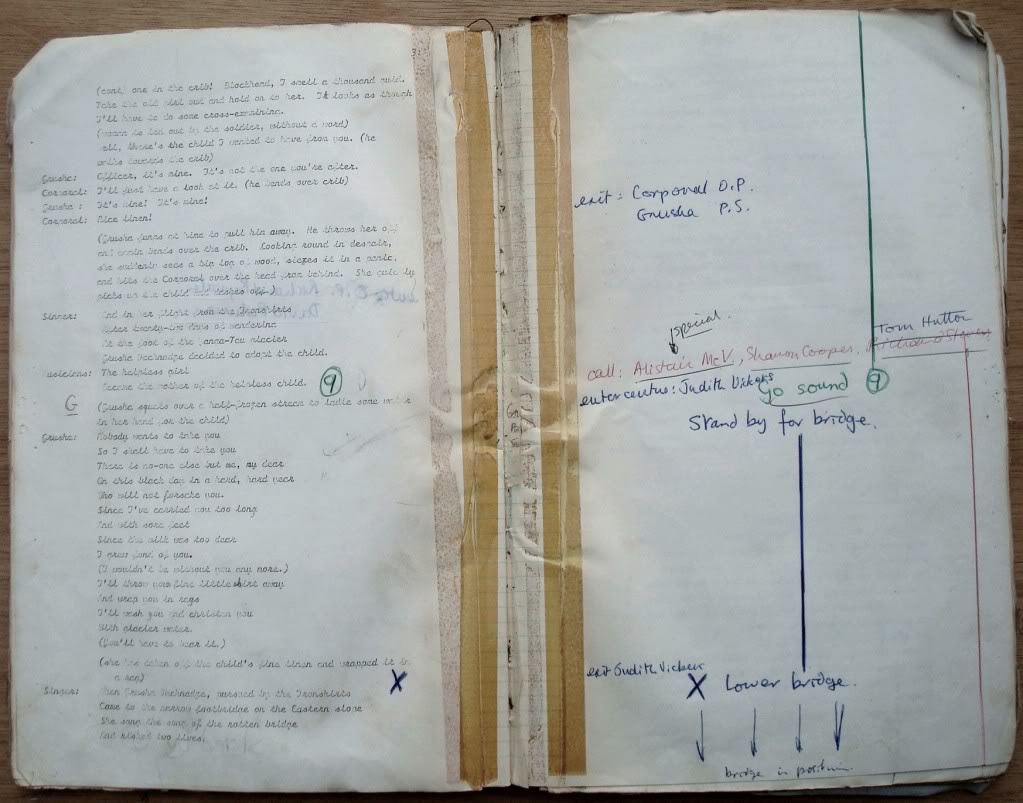 (cont) one in the crib! Blockhead, I smell a thousand
Take the old girl out and hold on to her. It looks as though
I'll have to do some cross-examining.
(woman is led out by the soldier, without a word)
there's the child I wanted to have from you. (he
walks towards the crib)
Grusha: Officer, it's mine. It's not the one you're after.
Corporal: I'll just have a look at it. (he bends over crib)
Grusha: It's mine! It's mine!
Corporal: Nice linen!
(Grusha jumps at him to pull him away. He throws her off
and again bends over the crib. Looking round in despair,
she suddenly sees a big log of wood, siezes it in a panic,
and hits the Corporal over the head from behind. She quickly
picks up the child and
Singer: And in her flight from the Ironshirts
After twenty-two days of wandering
At the foot of the Janga-Tau glacier
Grusha Vachnadze decided to adopt the child.
Musicians: The helpless girl
Became the mother of the helpless child.
9
G
(Grusha squats over a half-frozen stream to ladle some water
in her hand for the child)
Grusha: Nobody wants to take you
So I shall have to take you
There is no-one else but me, my dear
On this black day in a hard, hard year
Who will not forsake you.
Since I've carried you too long
And with sore feet
Since the milk was too dear
I grew fond of you.
(I wouldn't be without you any more.)
I'll throw your fine little shirt away
And wrap you in rags
I'll wash you and christen you
With glacier water.
(You'll have to bear it.)
(she has taken off the child's fine linen and wrapped it in
a rag)
X
Singer: When Grusha Vachnadze, pursued by the Ironshirts
Came to the narrow footbridge on the Eastern slope
She sang the song of the rotten bridge
And risked two lives.
exit = Corporal O.P.
Grusha P.S.
special.
Tom Hutton
call: Alistair McV., Sharon Cooper, Richard
enter centre: Judith Vickers
go sound 9
Stand by for bridge.
exit Judith Vickers
X Lower bridge.
bridge in position.